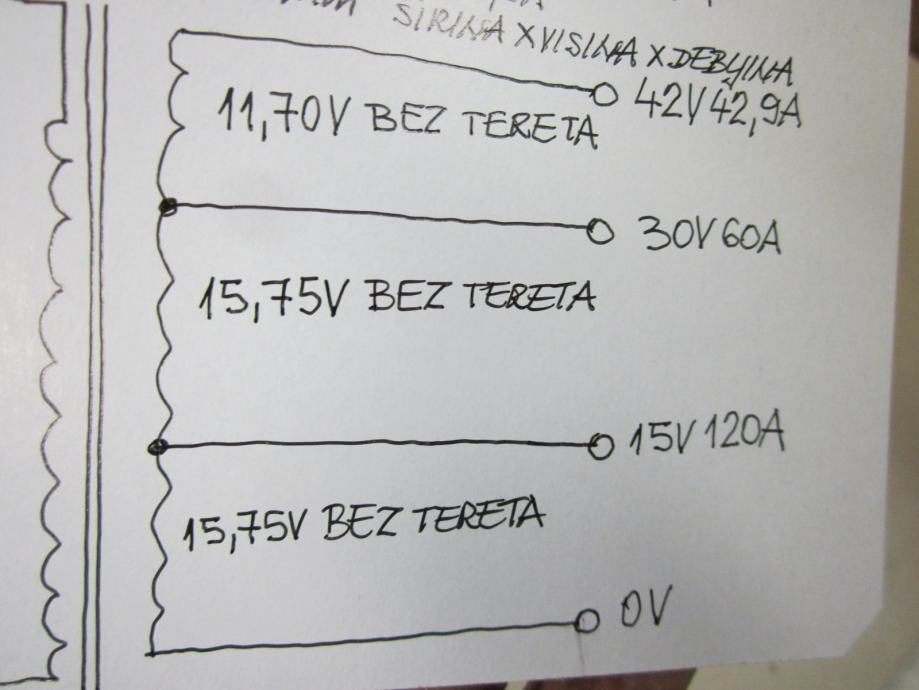 ŠIRINA X VISINA X DEBLJINA
42V 42,9A
11,70V BEZ TERETA
30V 60A
15,75V BEZ TERETA
15V 120A
15,75V BEZ TERETA
0V